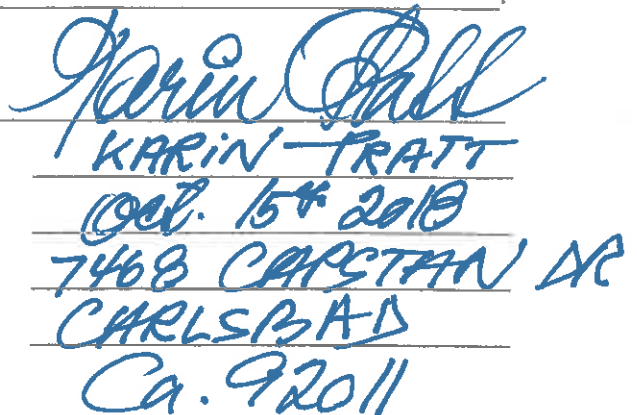 Karin Pratt
KARiN PRATT
Oct. 15th 2018
7468 CAPSTAN DR
CARLSBAD
Ca. 92011